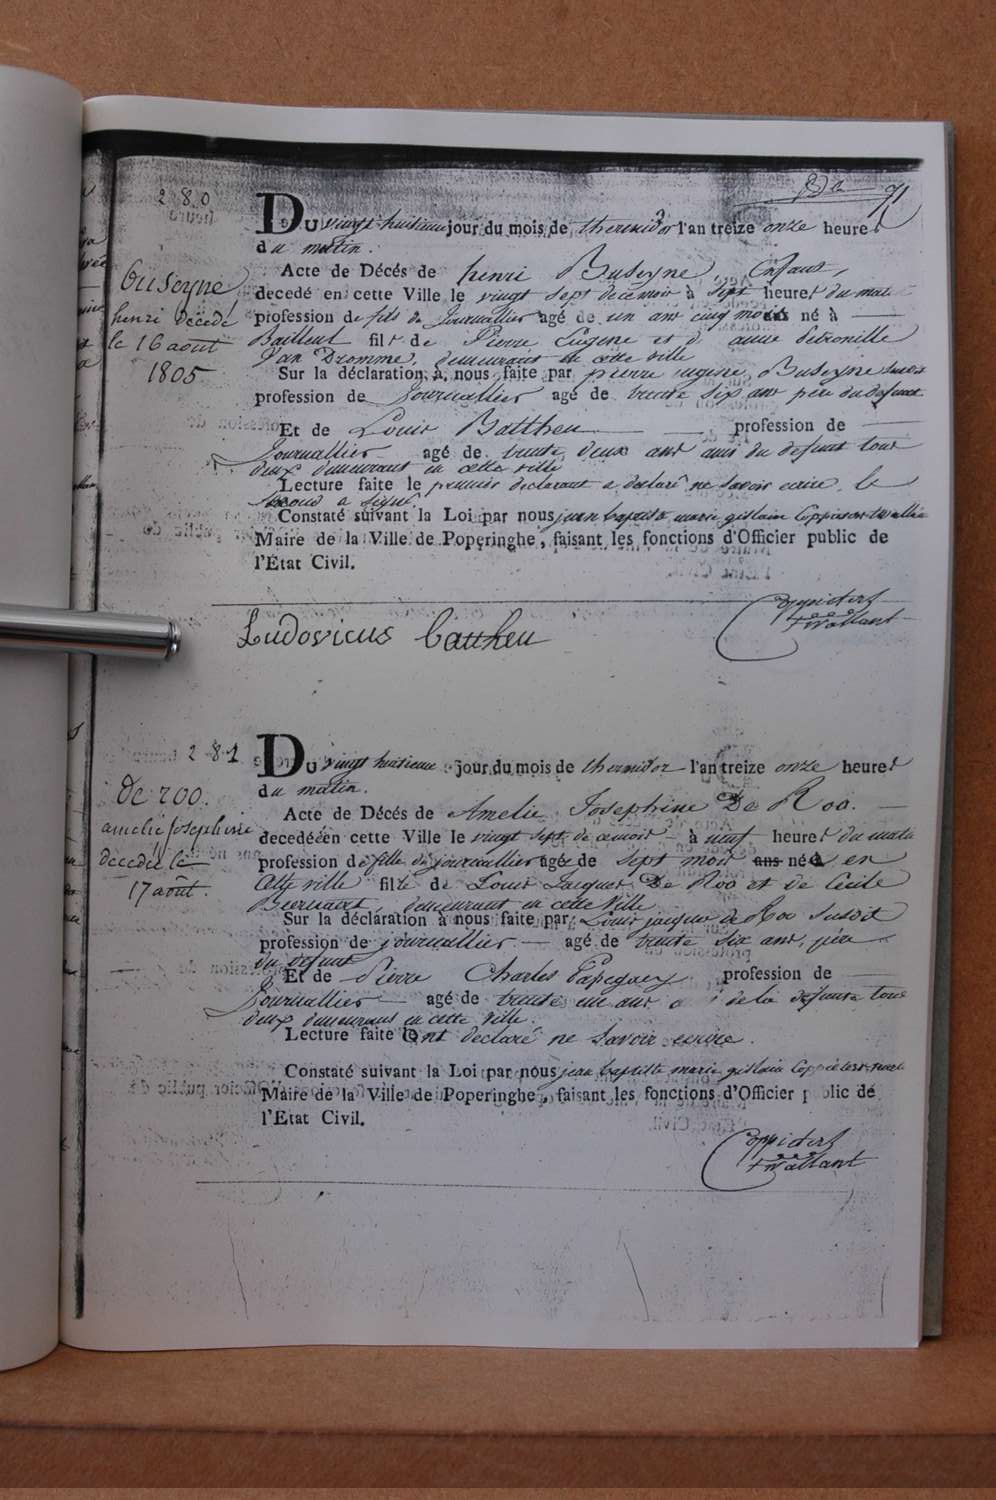 280
Du vingt huitieme jour du mois de thermidor l'an treize onze heures
du matin.
Buseyne
henri décédé
le 16 aout
1805
Acte de Décés de henri Buseyne, Enfant,
decedé en cette Ville le vingt sept de ce mois à sept heures du matin
profession de fils de journallier agé de un ans cinq mois né à
Bailleul fils de Pierre Eugene et d'anne Petronille
Van Dromme, demeurant en cette ville
Sur la déclaration à nous faite par pierre eugene Buseyne susdit
profession de journallier agé de trente six ans père du defunt
Et de Louis Battheu profession de
Journallier agé de trente deux ans ami du defunt tous
deux demeurant en cette ville
Lecture faite le premier declarant a declaré ne savoir ecrire, le
second a signé.
Constaté suivant la Loi par nous jean baptiste marie gislain Coppieters
Maire de la Ville de Poperinghe, faisant les fonctions d'Officier public de
l'État Civil.
Coppieters
Ludovicus battheu
281
Du vingt huitieme jour du mois de thermidor l'an treize onze heures
du matin.
De roo.
amelie josephine
decedée le
17 août.
Acte de Décés de Amelie Josephine De Roo.
decedéé en cette Ville le vingt sept de ce mois à neuf heures du matin
profession de fille de journallier agée de sept mois ans née en
Cette ville fille de Louis Jacques De Roo et de Cecile
demeurant en cette ville
Sur la déclaration à nous faite par Louis jacques de Roo susdit
profession de journallier agé de trente six ans, père
du defunt
Et de Pierre Charles profession de
Journallier agé de trente ans de la defunte tous
deux demeurans en cette ville.
Lecture faite ont declaré ne savoir ecrire.
Constaté suivant la Loi par nous jean baptiste marie gislain Coppieters
Maire de la Ville de Poperinghe, faisant les fonctions d'Officier public de
l'État Civil.
Coppieters